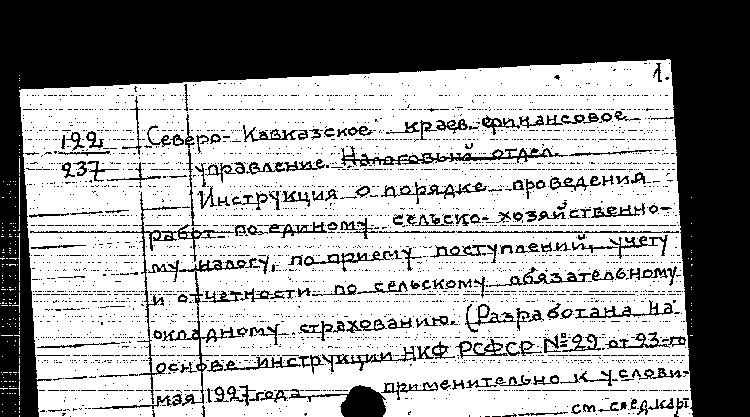 1.
122 Северо-Кавказское краев. финансовое
237 управление. Налоговый отдел.
Инструкция о порядке проведения
работ по единому сельско-хозяйственно-
му налогу, по приему поступлений, учету
и отчетности по сельскому обязательному
окладному страхованию. (Разработана на
основе инструкции НКФ РСФСР № 29 от 23-го
мая 1927 года, применительно к услови-
см. след. карт.